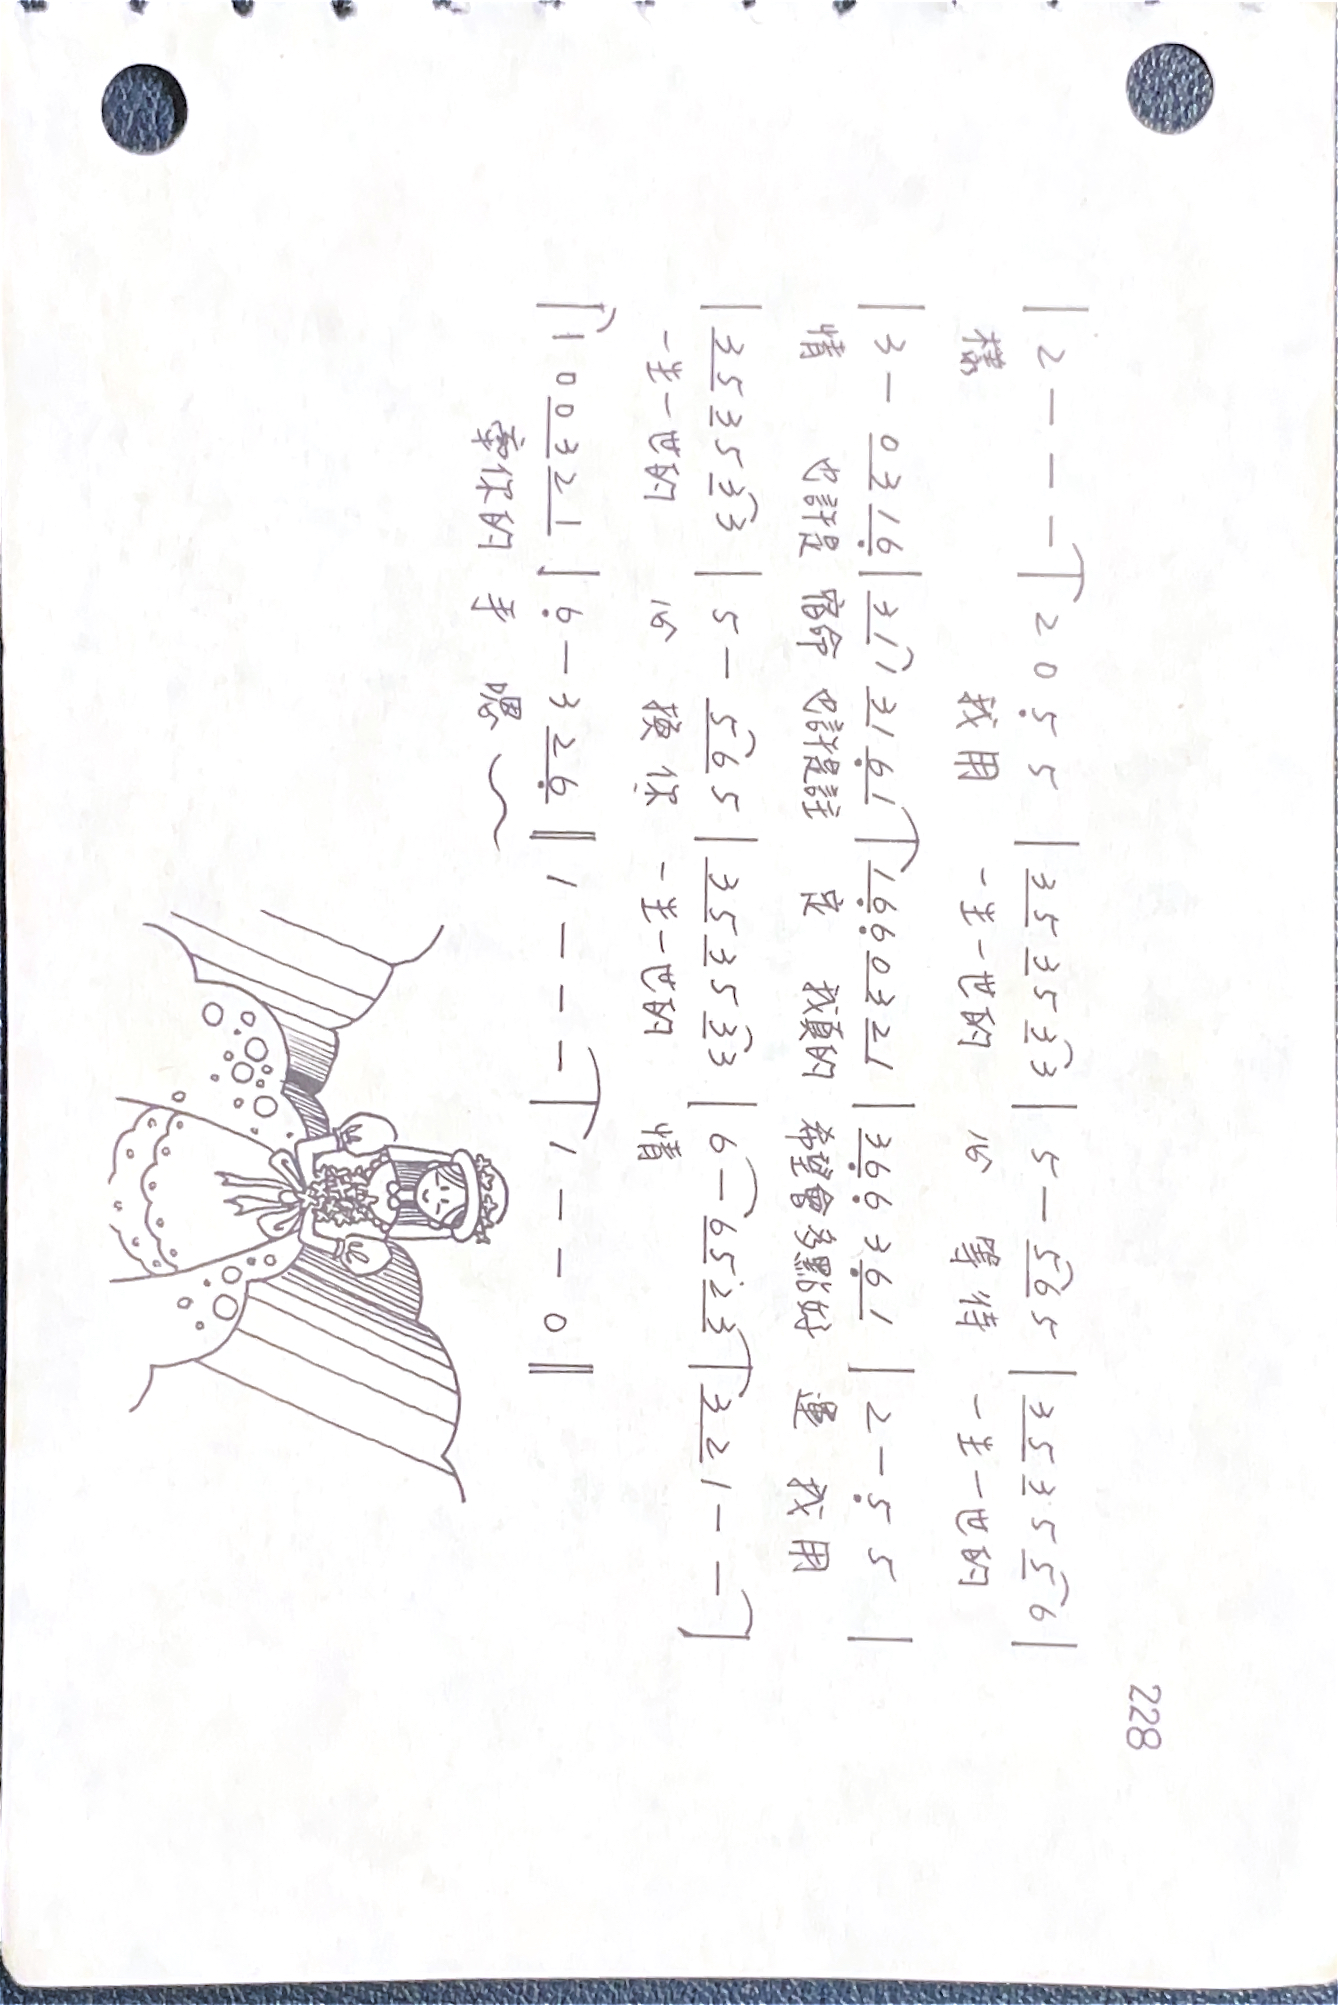 228
| 2 — — — | 2 0 5̣ 5 | 3 5 3 5 3 3 | 5 — 5 6 5 | 3 5 3 5 5 6 |
樣 我用 一生一世的 心 等待 一生一世的
| 3 — 0 3 1 6̣ | 3 1 1 3 1 6̣ 1 | 1 6̣ 6̣ 0 3 2 1 | 3 6̣ 6̣ 3 6̣ 1 | 2 — 5̣ 5 |
情 也許是 宿命 也許是註 定 我真的 希望會多點好 運 我用
| 3 5 3 5 3 3 | 5 — 5 6 5 | 3 5 3 5 3 3 | 6 — 6 5 2 3 | 3 2 1 — — |
一生一世的 心 換你 一生一世的 情
| 1 0 0 3 2 1 | 6̣ — 3 2 6̣ ‖ 1 — — — | 1 — — 0 ‖
牽你的 手 嗯～